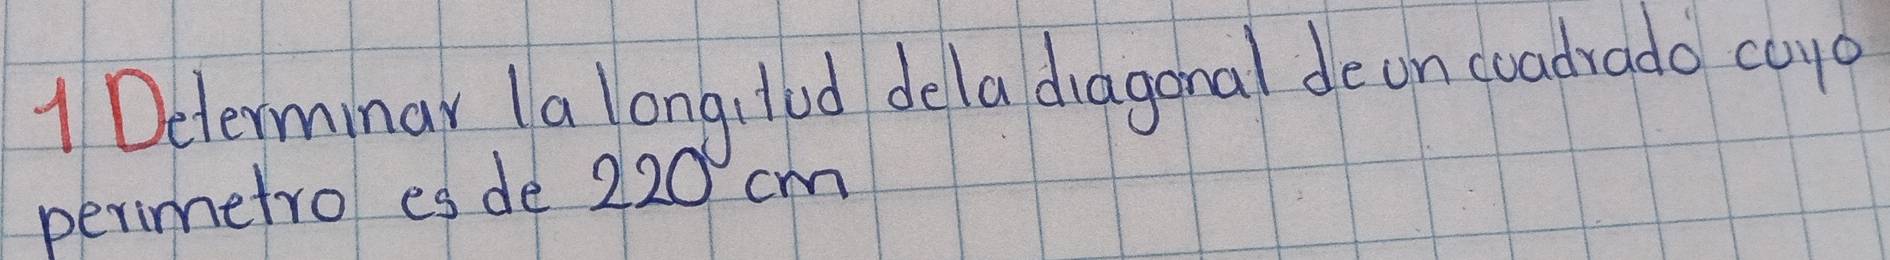 1 Determinar la longitud dela diagonal de un cuadrado cuyo
perimetro es de 220 cm